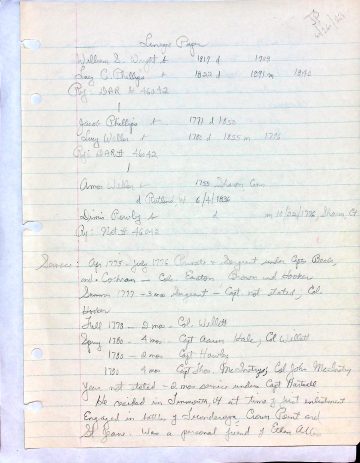 Lineage Paper
William S. Wright b 1817 d 1903
Lucy C. Phillips b 1822 d 1891 m 1840
Ref: DAR # 46042
Jacob Phillips b 1771 d 1850
Lucy Weller b 1780 d 1855 m 1795
Ref: DAR # 46042
Amos Weller b 1755 Sharon Conn
d Rutland Vt 6/4/1836
b d m 10/22/1776 Sharon, Ct
Ref: Nat # 46042
Service: Apr 1775 - July 1776 Private & Sergeant under Capt
and Cochran - Col. Easton Brown and Hooker
Summer 1777 - 3 mos Sergeant - Capt not stated, Col.
Hooker
Fall 1778 - 2 mos - Col. Willett
Spring 1780 - 4 mos Capt Aaron Hale, Col Willett
1780 - 2 mos Capt Hawley
1781 4 mos Capt McIntyre, Col John McIntyre
Year not stated - 2 mos service under Capt
He resided in Tinmouth, Vt at time of first enlistment
Engaged in battles of Ticonderoga, Crown Point and
St Jeans. Was a personal friend of Ethan Allen